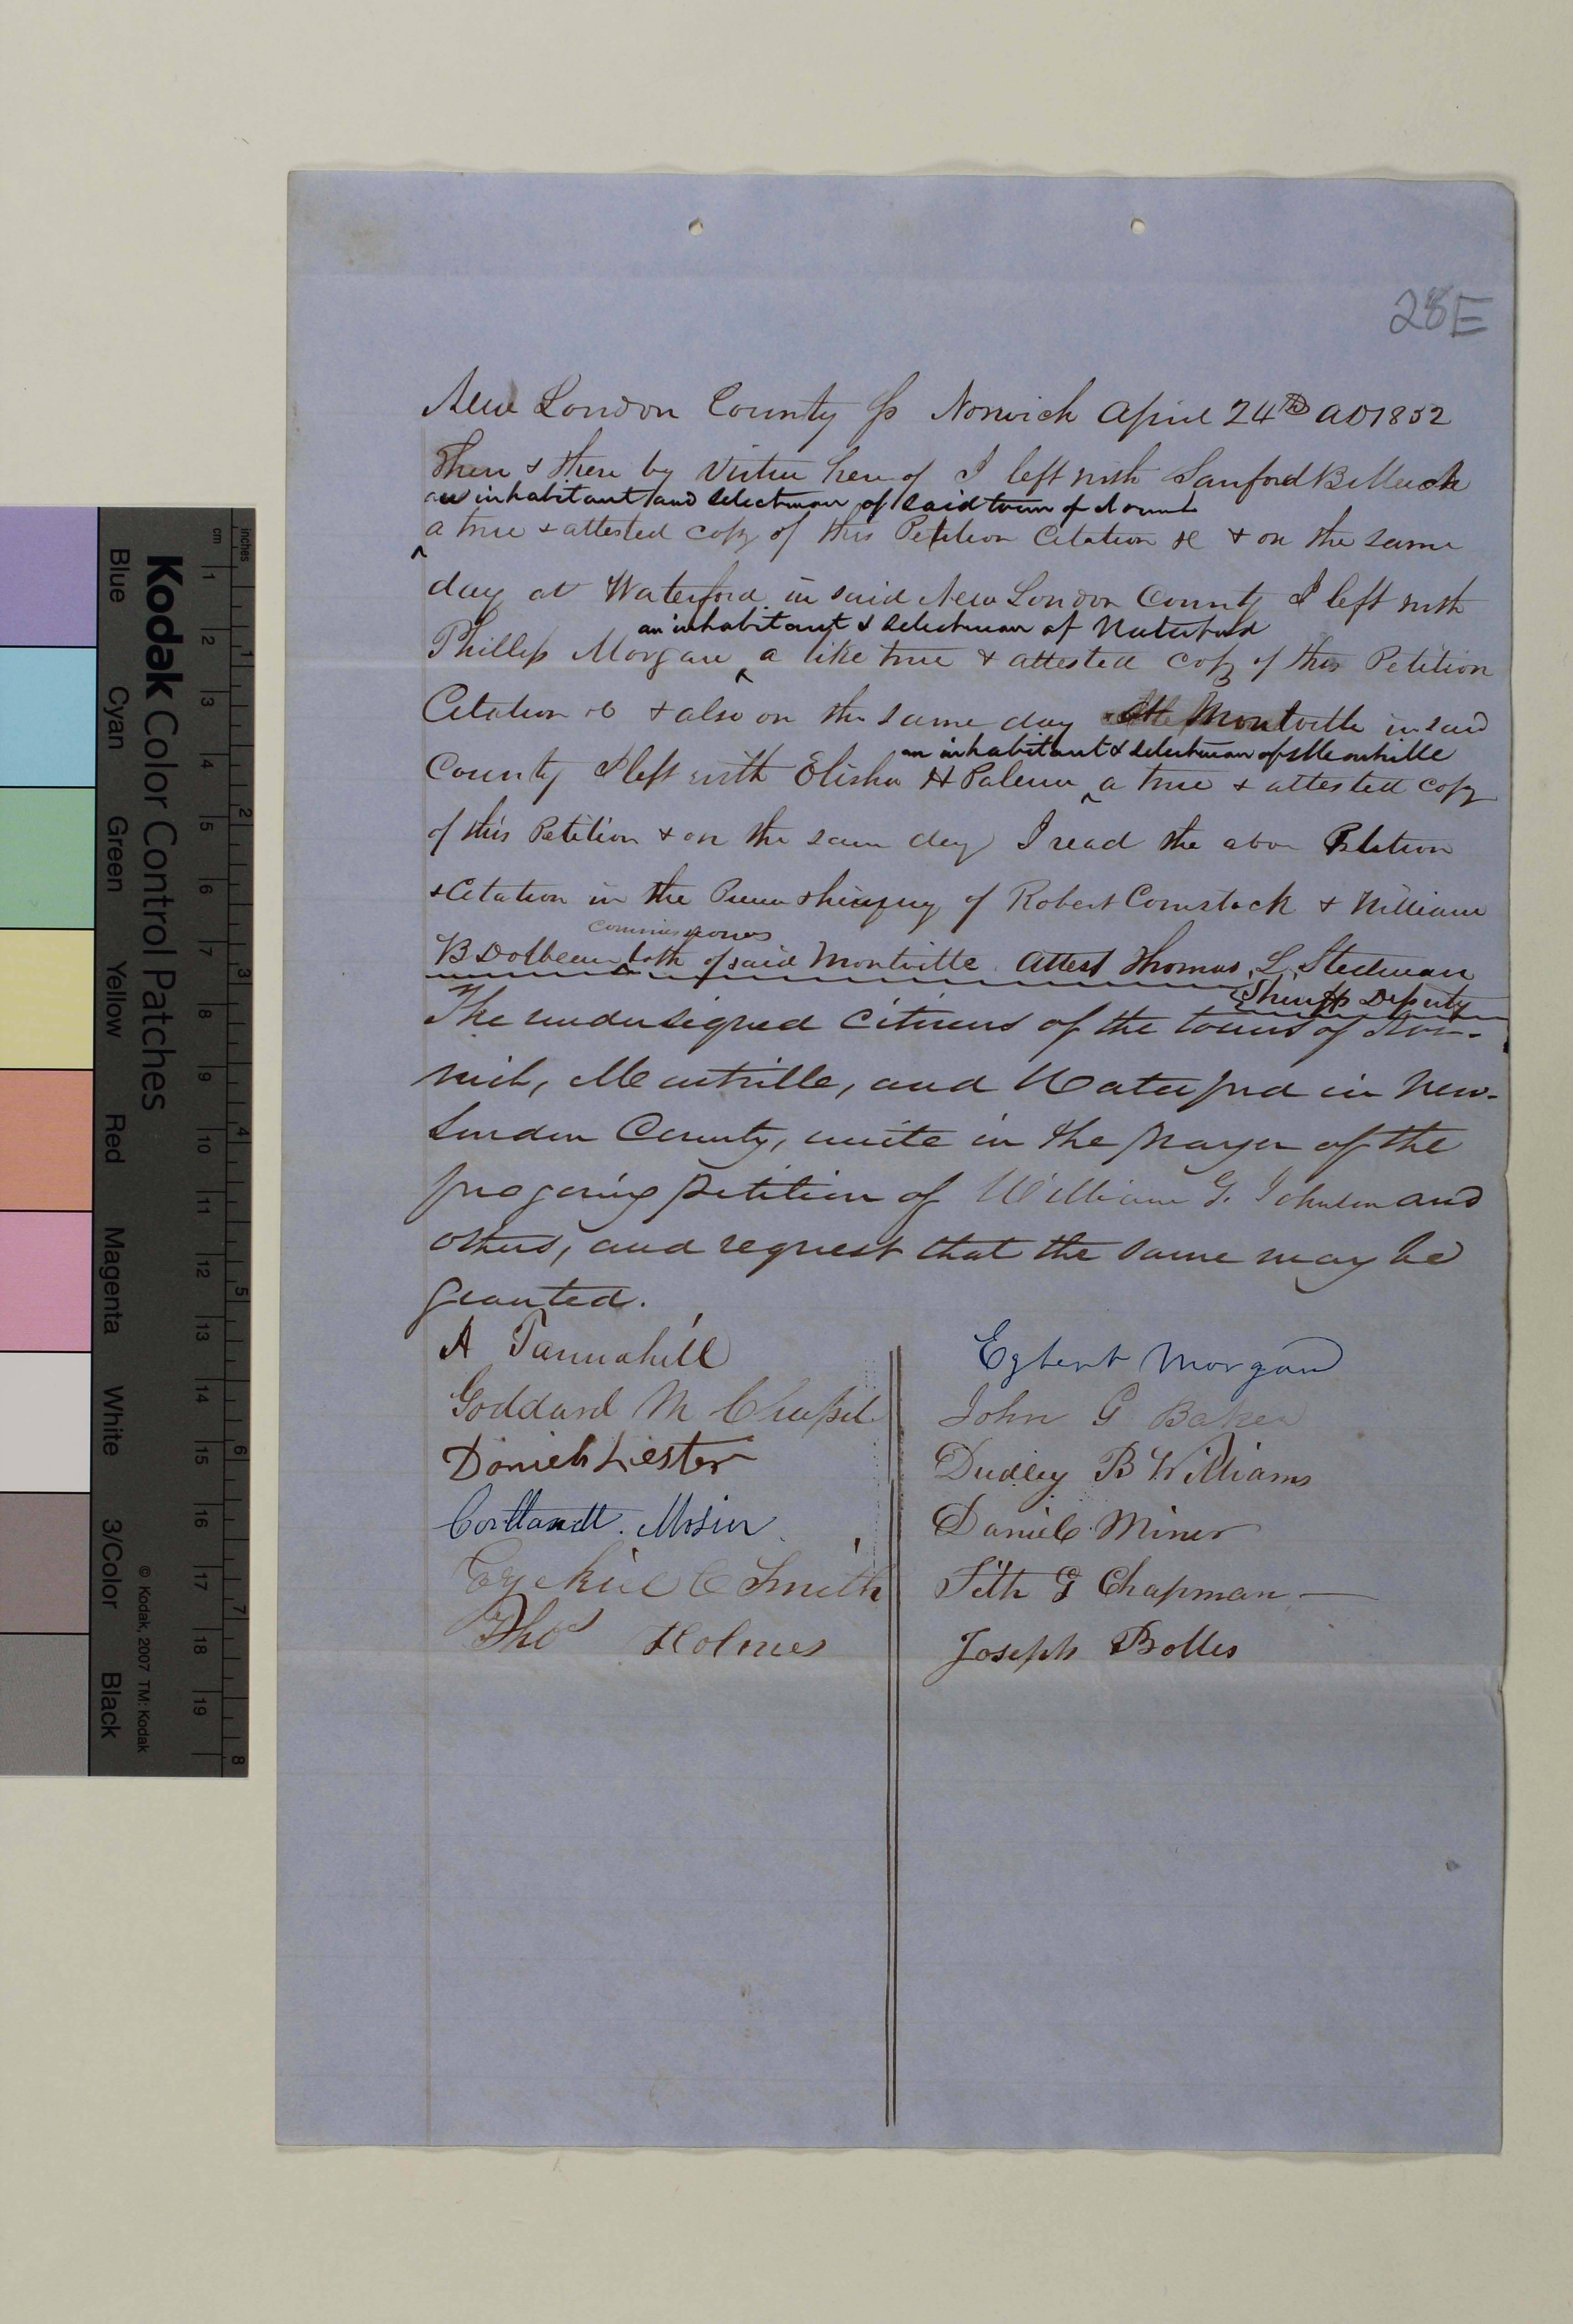 28E
New London County ss Norwich April 24th AD 1852
Then & there by Virtue hereof I left with Sanford B Meech
an inhabitant and Selectman of said town of Norwich
a true & attested copy of this Petition Citation &c & on the same
day at Waterford in said New London County I left with
an inhabitant & Selectman of Waterford
Phillip Morgan ^ a like true & attested copy of this Petition
Citation &c & also on the same day Montville in said
an inhabitant & selectman of Montville
County I left with Elisha H Palmer ^ a true & attested copy
of this Petition & on the same day I read the above Petition
& Citation in the & hearing of Robert Comstock & William
commissioners
B Dolbeare ^ both of said Montville. Attest Thomas L Stedman
Sheriffs Deputy
The undersigned citizens of the towns of Nor-
wich, Montville, and Waterford in New-
London County, unite in the prayer of the
foregoing petition of William G. Johnson and
others, and request that the same may be
granted.
A Tannahill
Goddard M Chapel
Daniel Lester
Cortlandt. Mosier
Ezekiel C Smith
Thos Holmes
Egbert Morgan
John G Baker
Dudley B Williams
Daniel Miner
Seth G Chapman
Joseph Bolles
Kodak Color Control Patches
Blue Cyan Green Yellow Red Magenta White 3/Color Black
© Kodak, 2007 TM: Kodak
inches 1 2 3 4 5 6 7 8
cm 1 2 3 4 5 6 7 8 9 10 11 12 13 14 15 16 17 18 19